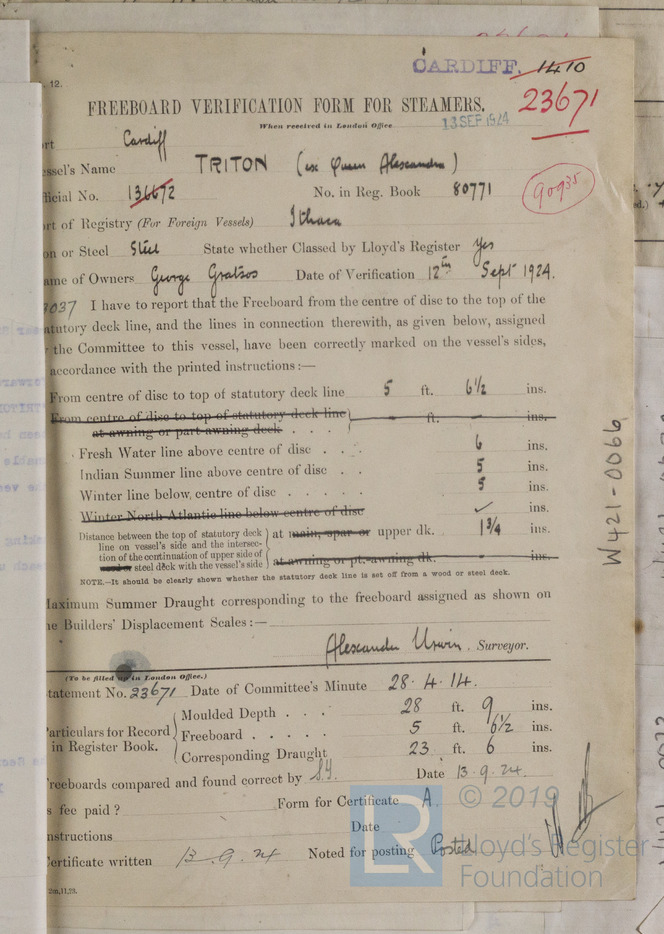 CARDIFF. 1410
12.
23671
FREEBOARD VERIFICATION FORM FOR STEAMERS.
When received in London Office
13 SEP 1924
ort Cardiff
essel's Name TRITON (ex Queen Alexandra)
ficial No. 136672 No. in Reg. Book 80771
rt of Registry (For Foreign Vessels) Ithaca
on or Steel Steel State whether Classed by Lloyd's Register Yes
ame of Owners George Gratsos Date of Verification 12th Sept 1924.
3037 I have to report that the Freeboard from the centre of disc to the top of the
tatutory deck line, and the lines in connection therewith, as given below, assigned
the Committee to this vessel, have been correctly marked on the vessel's sides,
accordance with the printed instructions:—
From centre of disc to top of statutory deck line 5 ft. 6½ ins.
From centre of disc to top of statutory deck line
at awning or part-awning deck . . . - ft. - ins.
Fresh Water line above centre of disc . . . 6 ins.
Indian Summer line above centre of disc . . 5 ins.
Winter line below centre of disc . . . . . 5 ins.
Winter North Atlantic line below centre of disc ✓ ins.
Distance between the top of statutory deck
line on vessel's side and the intersec-
tion of the continuation of upper side of
steel deck with the vessel's side
at main, spar or upper dk. 1¾ ins.
at awning or pt.-awning dk. - ins.
NOTE.—It should be clearly shown whether the statutory deck line is set off from a wood or steel deck.
Maximum Summer Draught corresponding to the freeboard assigned as shown on
he Builders' Displacement Scales:—
Alexander Urwin, Surveyor.
(To be filled up in London Office.)
tatement No. 23671 Date of Committee's Minute 28.4.14.
articulars for Record
in Register Book.
Moulded Depth . . . 28 ft. 9 ins.
Freeboard . . . . . 5 ft. 6½ ins.
Corresponding Draught 23 ft. 6 ins.
reeboards compared and found correct by Date 13.9.24.
s fee paid? Form for Certificate A.
nstructions Date
ertificate written 13.9.24 Noted for posting Posted
2m,11,23.
W421-0066
© 2019
LR Lloyd's Register
Foundation